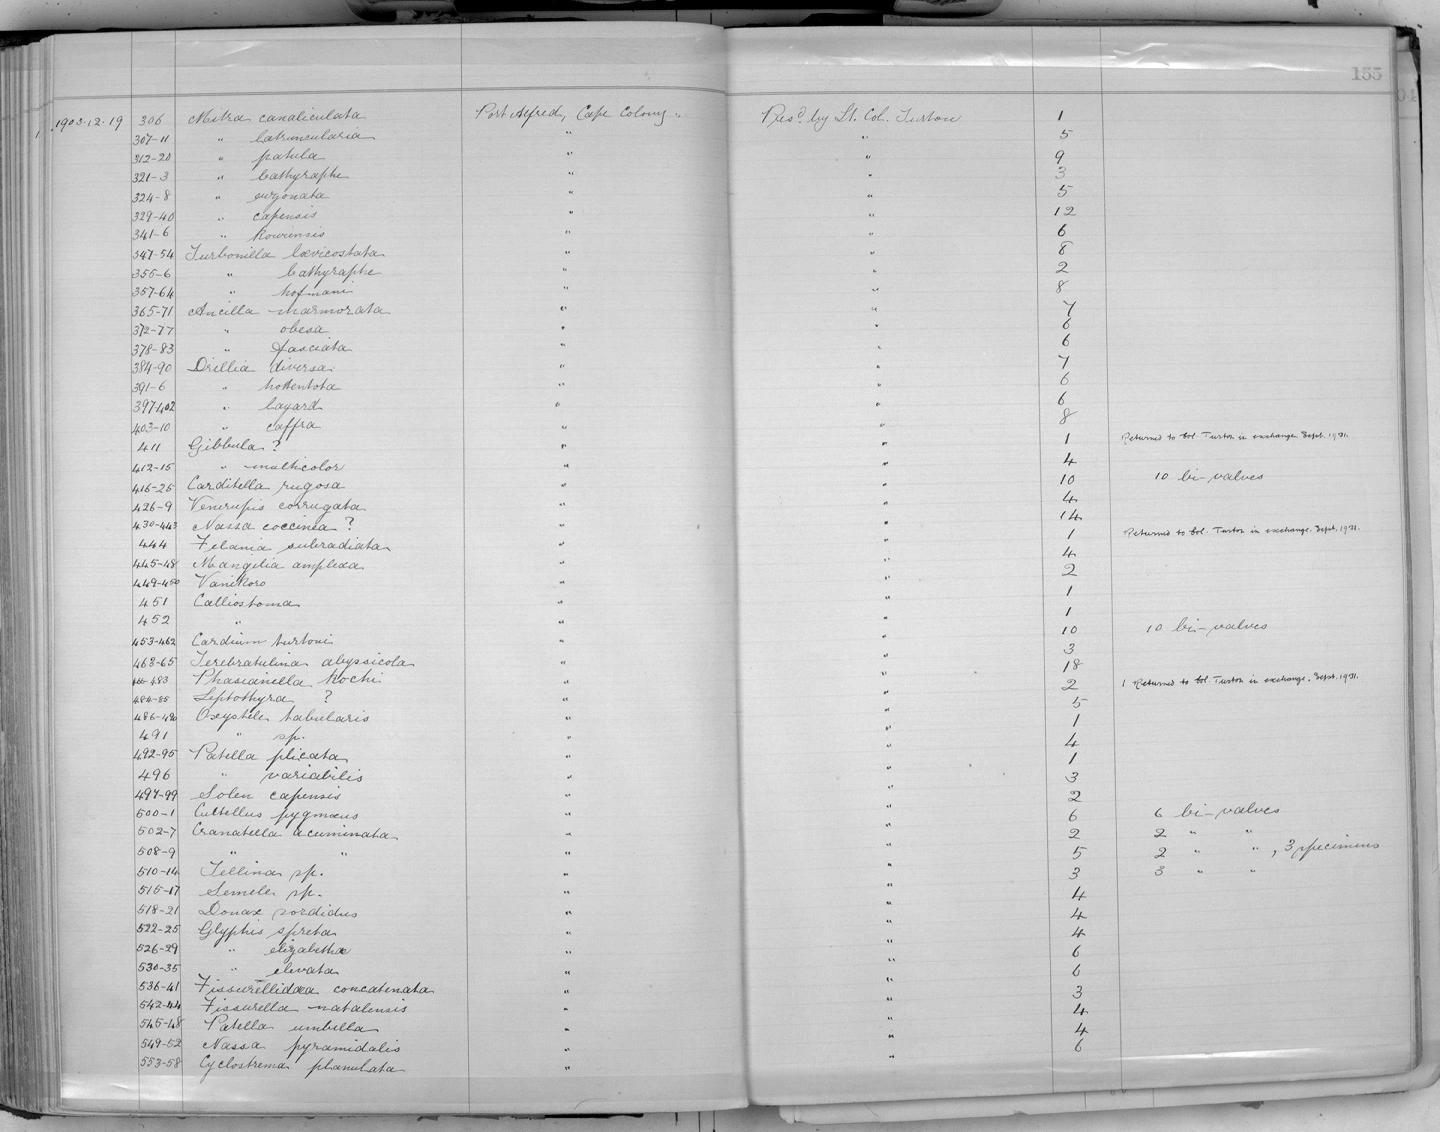 155
1903.12.19 306 Mitra canaliculata Port Alfred, Cape Colony " Pres.d by Lt. Col. Turton 1
307-11 " latruncularia " " 5
312-20 " patula " " 9
321-3 " bathyraphe " " 3
324-8 " euzonata " " 5
329-40 " capensis " " 12
341-6 " kowiensis " " 6
347-54 Turbonilla lævicostata " " 8
355-6 " bathyraphe " " 2
357-64 " hofmani " " 8
365-71 Ancilla marmorata " " 7
372-77 " obesa " " 6
378-83 " fasciata " " 6
384-90 Drillia diversa " " 7
391-6 " hottentota " " 6
397-402 " layard " " 6
403-10 " caffra " " 8
411 Gibbula ? " " 1 Returned to Col. Turton in exchange Sept. 1931.
412-15 " multicolor " " 4
416-25 Carditella rugosa " " 10 10 bi-valves
426-9 Venerupis corrugata " " 4
430-443 Nassa coccinea ? " " 14
444 Felania subradiata " " 1 Returned to Col. Turton in exchange. Sept. 1931.
445-48 Mangilia amplexa " " 4
449-450 Vanikoro " " 2
451 Calliostoma " " 1
452 " " " 1
453-462 Cardium turtoni " " 10 10 bi-valves
463-65 Terebratulina abyssicola " " 3
466-483 Phasianella kochi " " 18
484-85 Leptothyra ? " " 2 1 Returned to Col. Turton in exchange. Sept. 1931.
486-490 Oxystele tabularis " " 5
491 " sp. " " 1
492-95 Patella plicata " " 4
496 " variabilis " " 1
497-99 Solen capensis " " 3
500-1 Cultellus pygmæus " " 2
502-7 Cranatella acuminata " " 6 6 bi-valves
508-9 " " " " 2 2 " "
510-14 Tellina sp. " " 5 2 " " , 3 specimens
515-17 Semele sp. " " 3 3 " "
518-21 Donax sordidus " " 4
522-25 Glyphis spreta " " 4
526-29 " elizabethæ " " 4
530-35 " elevata " " 6
536-41 Fissurellidæa concatenata " " 6
542-44 Fissurella natalensis " " 3
545-48 Patella umbella " " 4
549-52 Nassa pyramidalis " " 4
553-58 Cyclostrema planulata " " 6